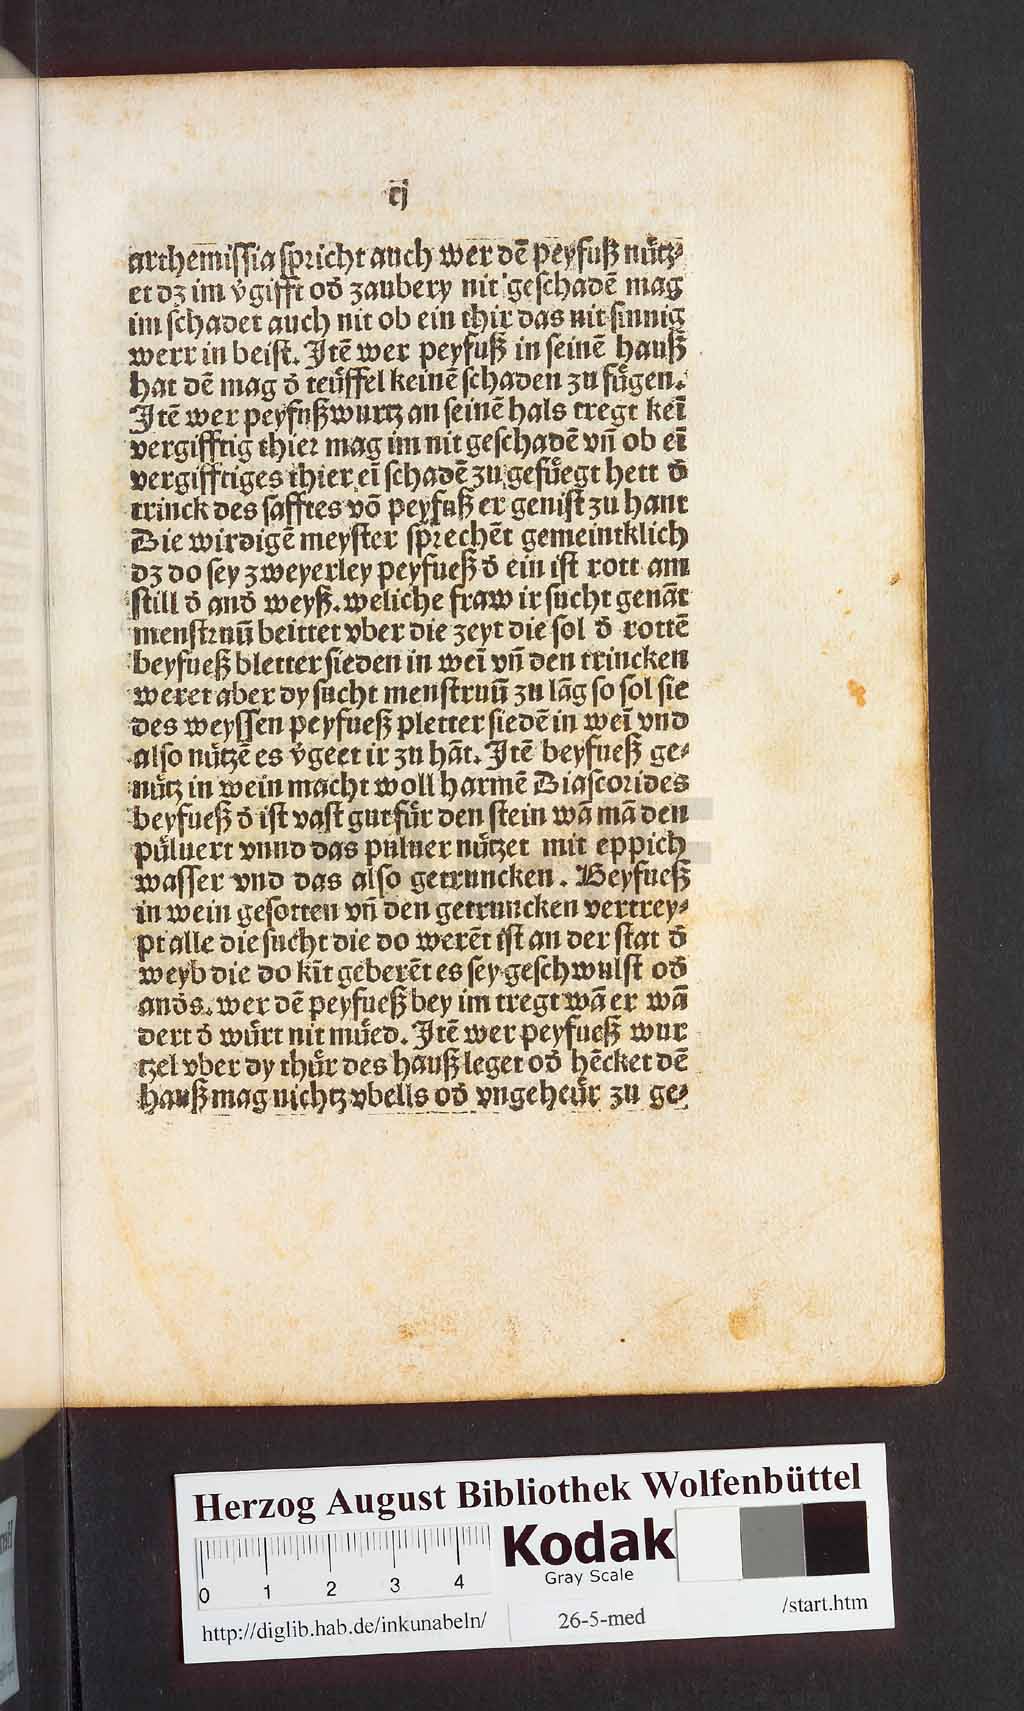 cj
arthemissia spricht auch wer dē peyfuß nuͤtz⸗
et dz im v̄gifft od̄ zaubery nit geschadē mag
im schadet auch nit ob ein thir das nit sinnig
werr in beist. Itē wer peyfuß in seinē hauß
hat dē mag d̄ teuͤffel keinē schaden zu fuͤgen.
Itē wer peyfußwurtz an seinē hals tregt keī
vergifftig thier mag im nit geschadē vn̄ ob eī
vergifftiges thier eī schadē zu gefuͤegt hett d̄
trinck des safftes vō peyfuß er genist zu hant
Die wirdigē meyster sprechēt gemeintklich
dz do sey zweyerley peyfueß d̄ ein ist rott am
still d̄ and̄ weyß. weliche fraw ir sucht genāt
menstruū beittet vber die zeyt die sol d̄ rottē
beyfueß bletter sieden in weī vn̄ den trincken
weret aber dy sucht menstruū zu lāg so sol sie
des weyssen peyfueß pletter siedē in weī vnd
also nuͤtzē es v̄geet ir zu hāt. Itē beyfueß ge⸗
nuͤtz in wein macht woll harmē Diascorides
beyfueß d̄ ist vast gut fuͤr den stein wā mā den
puͤluert vnnd das puluer nuͤtzet mit eppich
wasser vnd das also getruncken. Beyfueß
in wein gesotten vn̄ den getruncken vertrey⸗
pt alle die sucht die do werēt ist an der stat d̄
weyb die do kīt geberēt es sey geschwulst od̄
and̄s. wer dē peyfueß bey im tregt wā er wā
dert d̄ wuͤrt nit muͤed. Itē wer peyfueß wur
tzel vber dy thuͤr des hauß leget od̄ hēcket dē
hauß mag nichtz vbells od̄ vngeheuͤr zu ge⸗
Herzog August Bibliothek Wolfenbüttel
Kodak
Gray Scale
0 1 2 3 4
http://diglib.hab.de/inkunabeln/ 26-5-med /start.htm